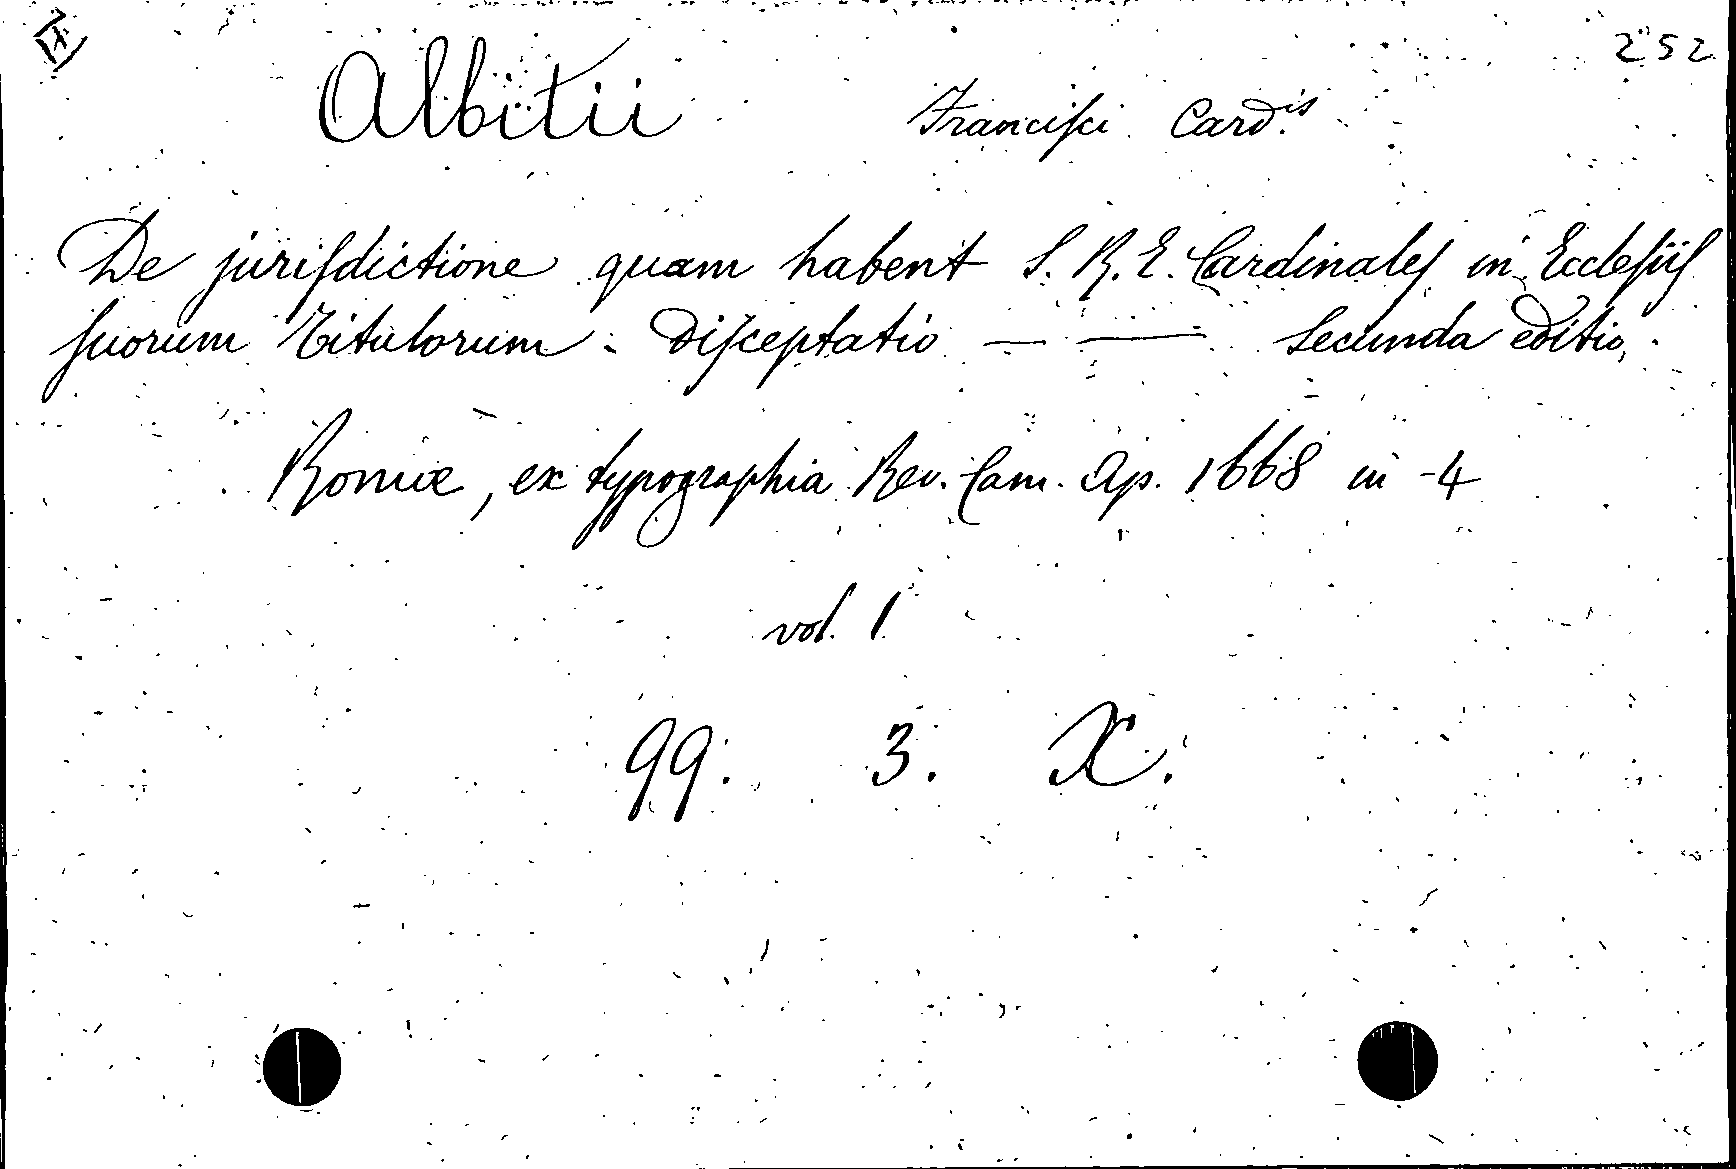 252
Albitii Francisci Card.is
De jurisdictione quam habent S. R. E. Cardinales in Ecclesiis
suorum Titulorum. Disceptatio — — Secunda editio.
Romæ, ex typographia Rev. Cam. Ap. 1668 in -4
vol. 1
99. 3. X.